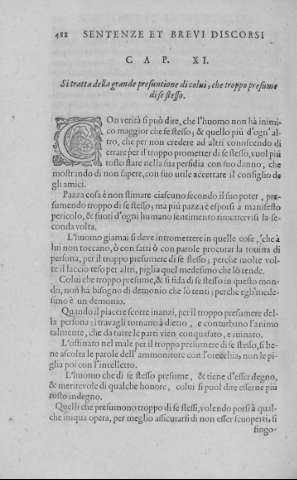 488 SENTENZE ET BREVI DISCORSI
CAP. XI.
Si tratta della grande presuntione di colui, che troppo presume
di se stesso.
CON verità si può dire, che l'huomo non hà inimi-
co maggior che se stesso; & quello più d'ogn'al-
tro, che per non credere ad altri conoscendo di
errare per il troppo prometter di se stesso, vuol più
tosto stare nella sua perfidia con suo danno, che
mostrando di non sapere, con suo utile accettare il consiglio de
gli amici.
Pazza cosa è non stimare ciascuno secondo il suo poter, pre-
sumendo troppo di se stesso; ma più pazza è esporsi a manifesto
pericolo, & fuori d'ogni humano sentimento rimettervisi la se-
conda volta.
L'huomo giamai si deve intromettere in quelle cose, che à
lui non toccano, ò con fatti ò con parole procurar la rovina di
persona, per il troppo presumere di se stesso; perche molte vol-
te il laccio teso per altri, piglia quel medesimo che lo tende.
Colui che troppo presume, & si fida di se stesso in questo mon-
do, non hà bisogno di demonio che lo tenti; perche egli medesi-
simo è un demonio.
Quando il piacere scorre inanzi, per il troppo presumere del-
la persona; i travagli tornano à dietro, e conturbano l'animo
talmente, che da tutte le parti vien conquasato, e ruinato.
L'ostinato nel male per il troppo presumere di se stesso, si be-
ne ascolta le parole dell'ammonitore con l'orecchia, non le pi-
glia poi con l'intelletto.
L'huomo che di se stesso presume, & tiene d'esser degno,
& meritevole di qualche honore, colui si puol dire esserne più
tosto indegno.
Quelli che presumono troppo di se stessi, volendo porsi à qual-
che iniqua opera, per meglio assicurarsi di non esser scoperti, si
fingo-